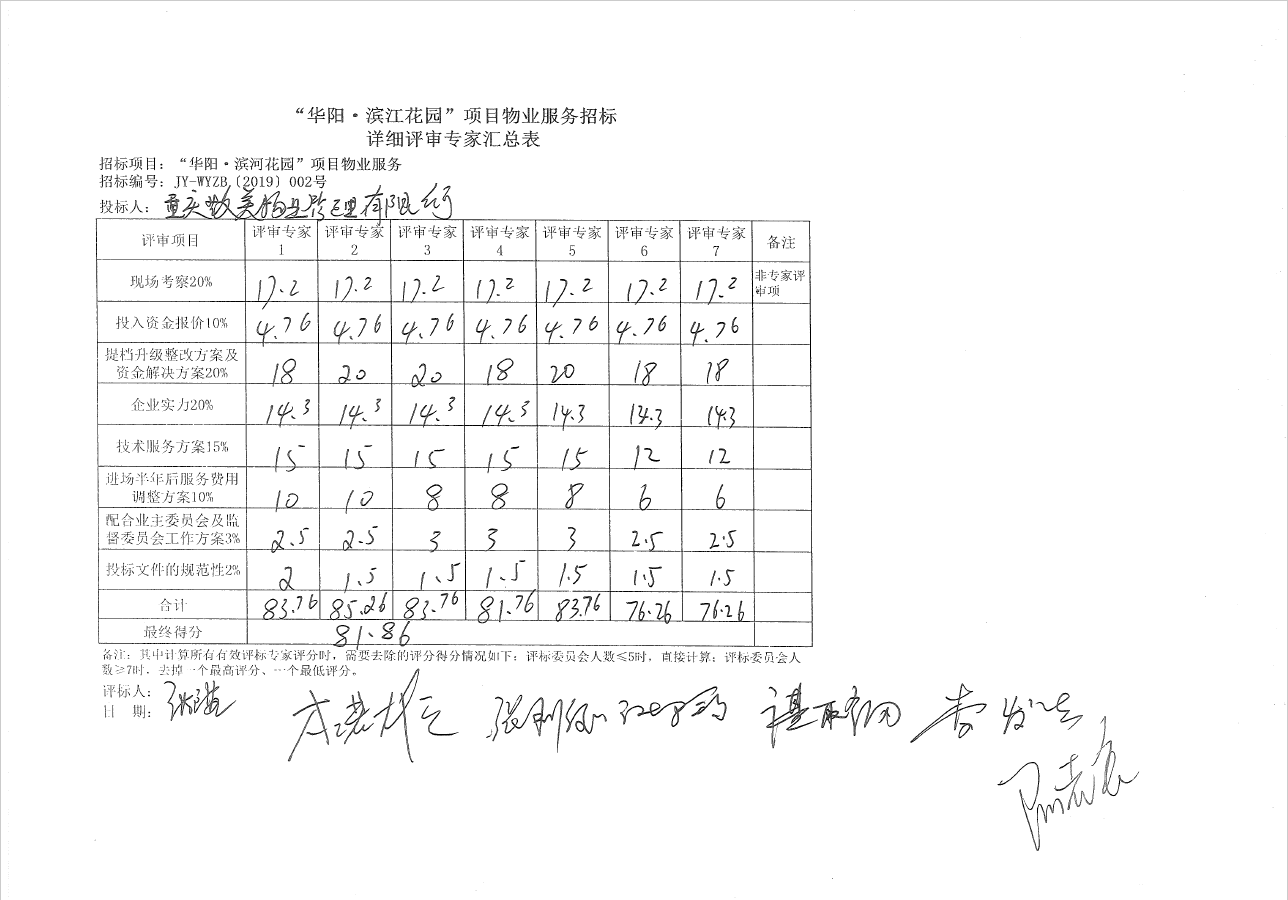 “华阳·滨江花园”项目物业服务招标
详细评审专家汇总表
招标项目：“华阳·滨河花园”项目物业服务
招标编号：JY-WYZB〔2019〕002号
投标人：重庆 美物业管理有限公司
评审项目 评审专家1 评审专家2 评审专家3 评审专家4 评审专家5 评审专家6 评审专家7 备注
现场考察20% 17.2 17.2 17.2 17.2 17.2 17.2 17.2 非专家评审项
投入资金报价10% 4.76 4.76 4.76 4.76 4.76 4.76 4.76
提档升级整改方案及资金解决方案20% 18 20 20 18 20 18 18
企业实力20% 14.3 14.3 14.3 14.3 14.3 14.3 14.3
技术服务方案15% 15 15 15 15 15 12 12
进场半年后服务费用调整方案10% 10 10 8 8 8 6 6
配合业主委员会及监督委员会工作方案3% 2.5 2.5 3 3 3 2.5 2.5
投标文件的规范性2% 2 1.5 1.5 1.5 1.5 1.5 1.5
合计 83.76 85.26 83.76 81.76 83.76 76.26 76.26
最终得分 81.86
备注：其中计算所有有效评标专家评分时，需要去除的评分得分情况如下：评标委员会人数≤5时，直接计算；评标委员会人
数≥7时，去掉一个最高评分、一个最低评分。
评标人：
日 期：